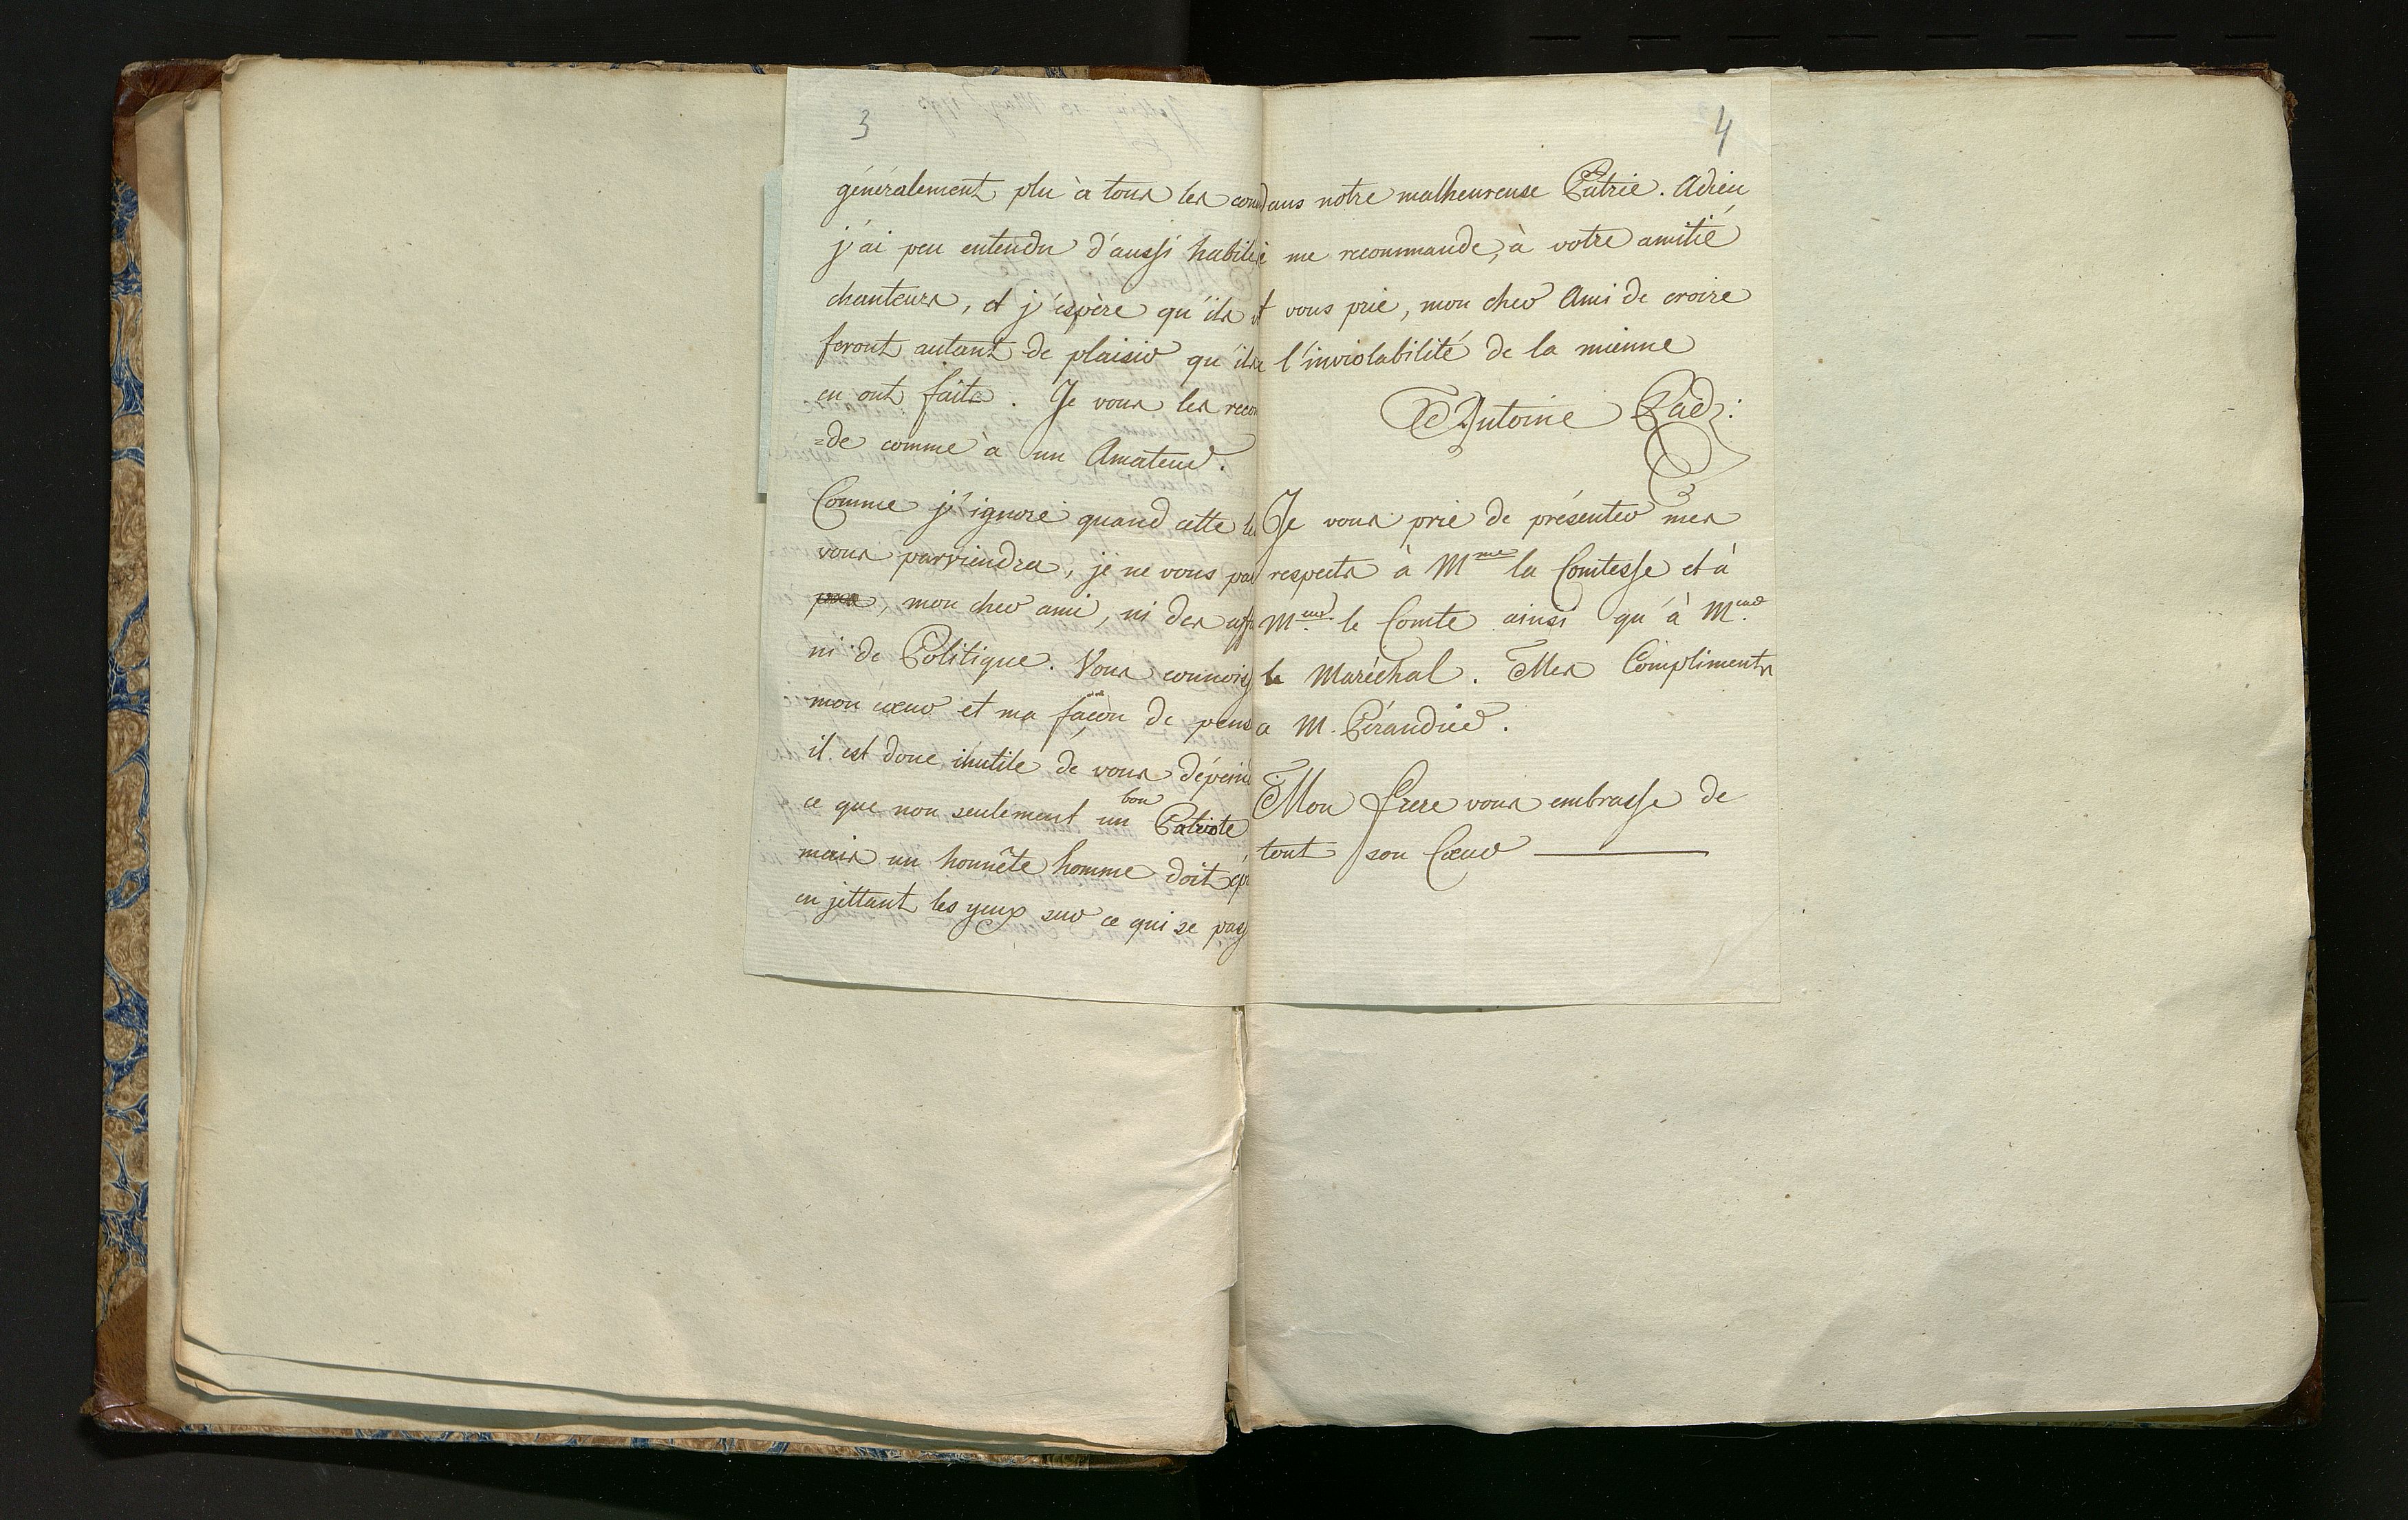 3
généralement plu à tous les con
j'ai peu entendu d'aussi habile
chanteurs, et j'espère qu'ils v
feront autant de plaisir qu'ils
en ont faits. Je vous les recom
=de comme à un Amateur.
Comme j'ignore quand cette le
vous parviendra, je ne vous par
mon cher ami, ni des affa
ni de Politique. Vous connoiss
mon cœur et ma façon de pens
il est donc inutile de vous dépeind
ce que non seulement un bon Patriote
mais un honnête homme doit ép
en jettant les yeux sur ce qui se pass
4
dans notre malheureuse Patrie. Adieu
je me recommande, à votre amitié
et vous prie, mon cher Ami de croire
à l'inviolabilité de la mienne
Antoine Rad:
Je vous prie de présenter mes
respects à Mme la Comtesse et à
Meur le Comte ainsi qu'à Meur
le Maréchal. Mes Compliments
a M. Pérandier.
Mon frere vous embrasse de
tout son Cœur